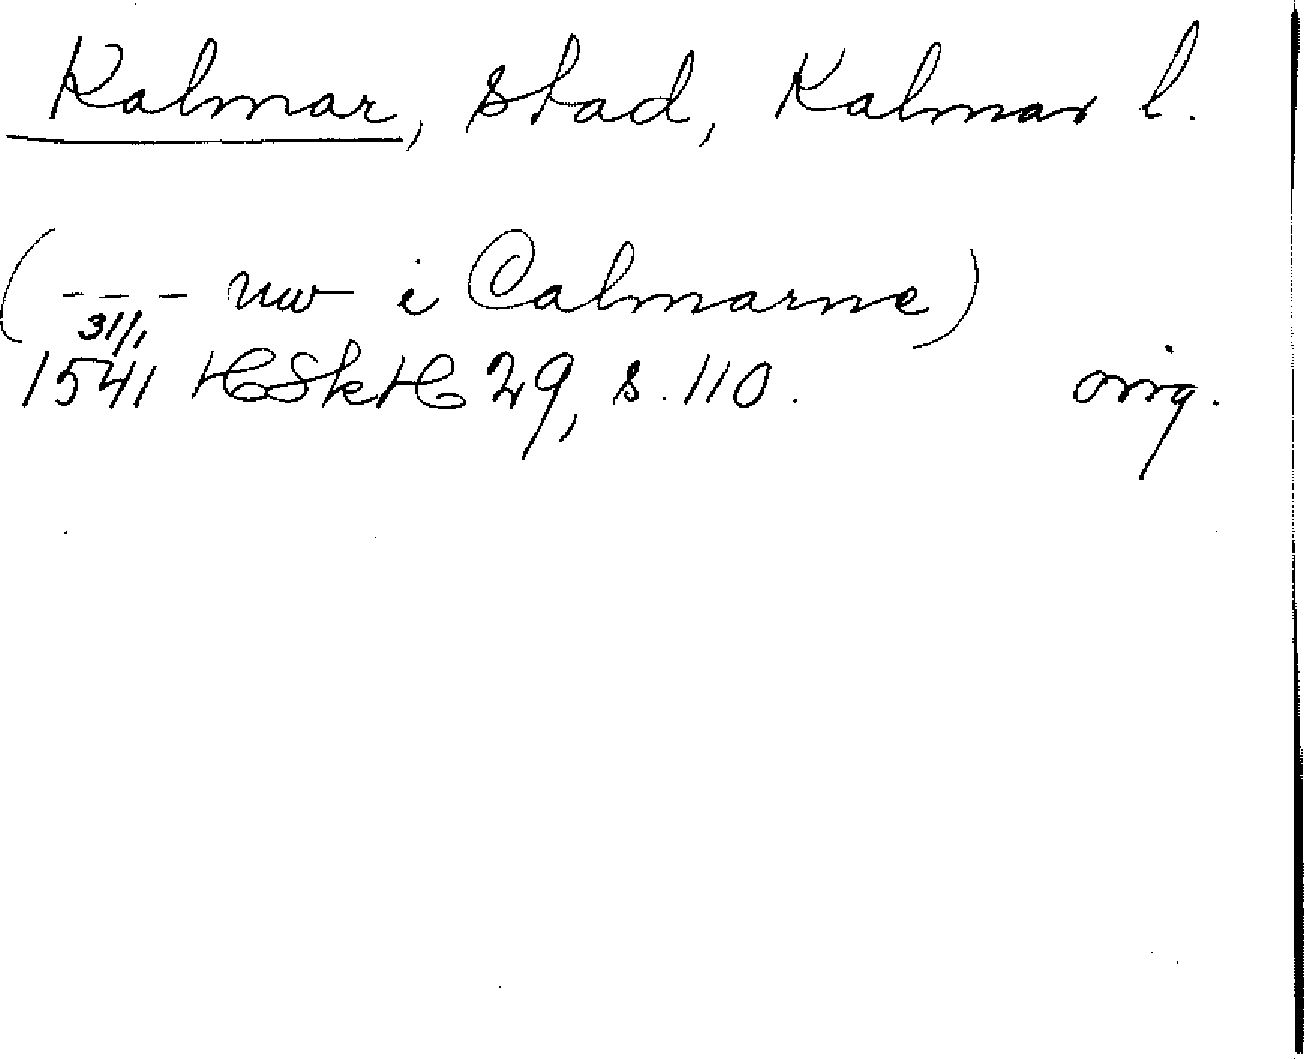 Kalmar, stad, Kalmar l.
(--- nw i Calmarne)
31/1
1541 HSkH 29, s. 110. orig.